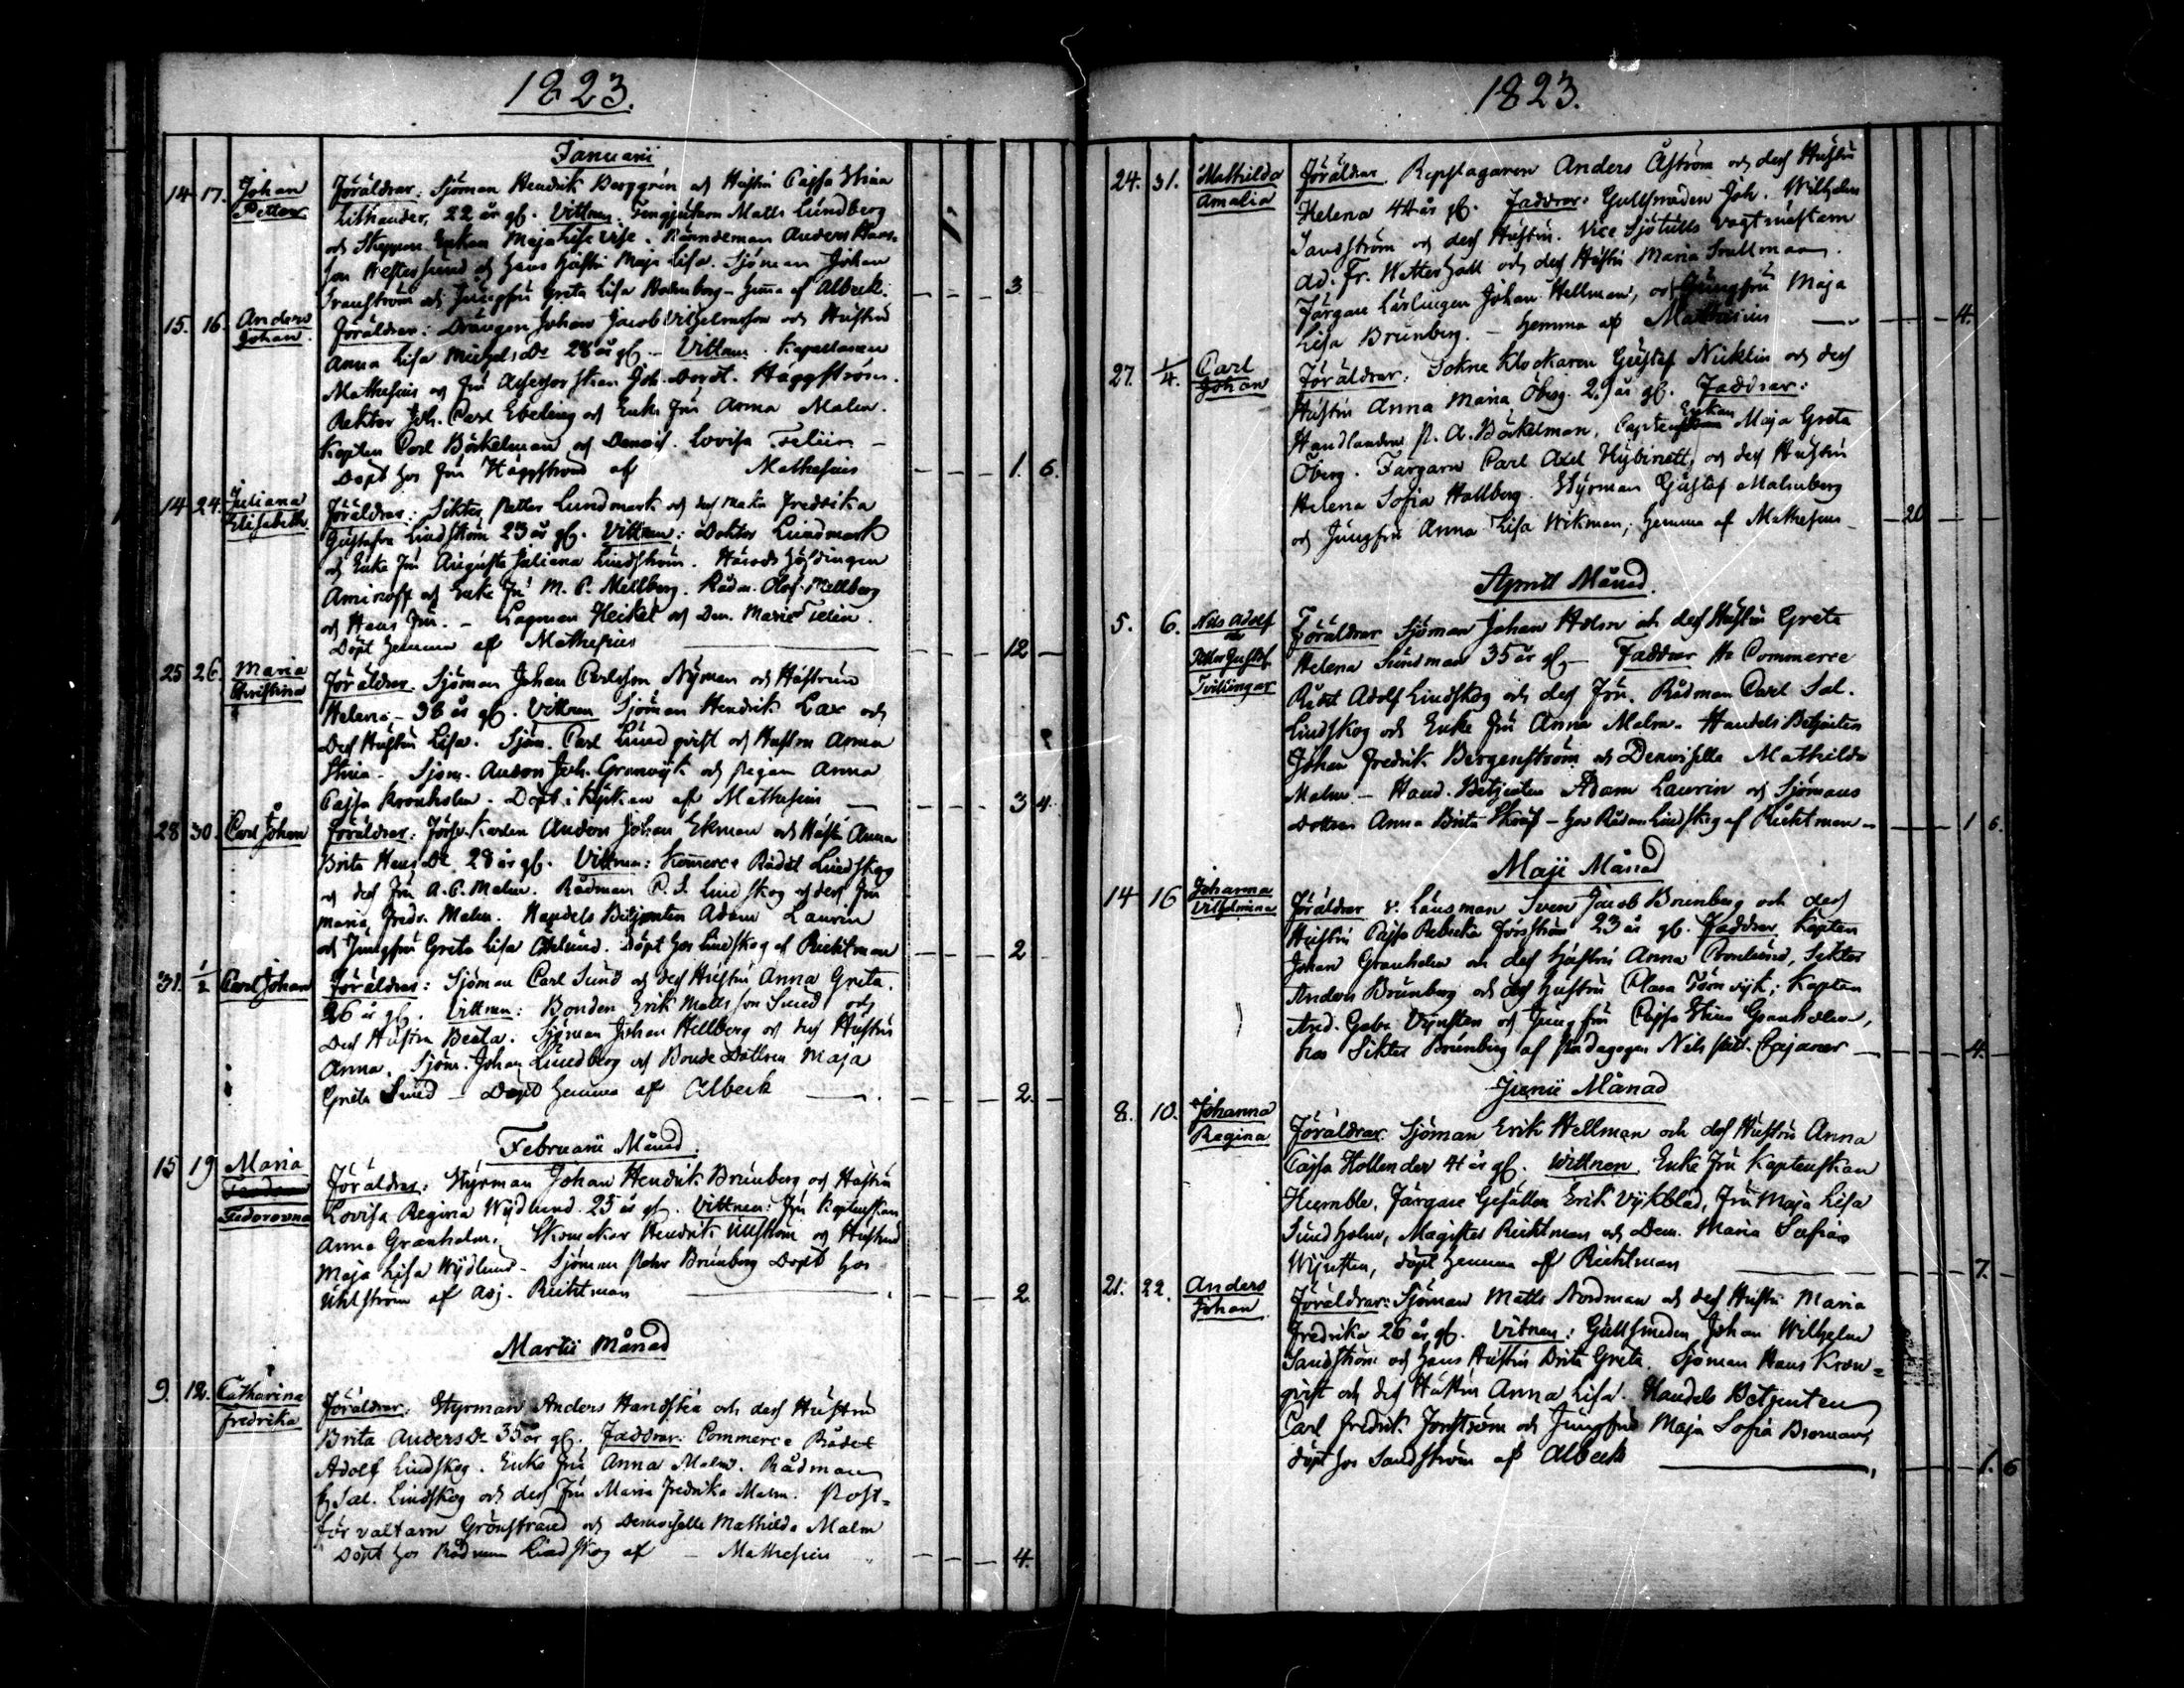 1823.
Januarii
14 17. Johan Petter
Föräldrar: Sjöman Hendrik Berggrén och Hustru Cajsa Stina
Lithander, 22 år gl. Vittnen. Matts Lundberg
och Enkan Maja Lisa Anders
Westersund och hans Hustru Maja Lisa. Sjöman Johan
och Jungfru Greta Lisa af Albeck. 3
15. 16. Anders Johan.
Föräldrar: Drängen Johan Jacob Vilhelmsson och Hustru
Anna Lisa Michels Dr 28 år gl. Vittnen. Kapellanen
Mathesius och Fru Assessorskan Joh. Dorot. Häggström.
Rektor Joh. Carl Ebeling och Enke Fru Anna Malm.
Kapten Carl Böckelman och Demois. Lovisa Telin
Döpt hos Fru Häggström af Mathesius 1. 6.
14 24. Juliana Elisabeth.
Föräldrar: Petter Lundmark och des Maka Fredrika
Gustafva Lindström 23 år gl. Vittnen: Doktor Lundmark
och Enke Fru Augusta Juliana Lindström. Härads Höfdingen
Aminoff och Enke Fru M. C. Mellberg. Rådm. Olof Mellberg
och Hans Fru. Lagman Heikel och Dem. Maria Telin.
Döpt hemma af Mathesius 12
25 26. Maria Christina
Föräldrar. Sjöman Johan Carlsson Nyman och Hustrun
Helena 38 år gl. Vittnen Sjöman Hendrik Lax och
Des Hustru Lisa. Sjöm. Carl Lundqvist och Hustru Anna
Stina. Sjöm. Anders Joh. Granvijk och Pigan Anna
Cajsa Kronholm. Döpt i Kyrkan af Mathesius 3 4.
28 30. Carl Johan
Föräldrar: Anders Johan Ekman och Hust. Anna
Brita Hans Dr 28 år gl. Vittnen: Kommerce Rådet Lindskog
och des Fru A. C. Malm. Rådman C. S. Lindskog och des Fru
Maria Fredr. Malm. Handels Betjenten Adam Laurin
och Jungfru Greta Lisa Döpt hos Lindskog af Ricktman 2
31. 1/2 Carl Johan
Föräldrar: Sjöman Carl Sund och des Hustru Anna Greta.
26 år gl. Vittnen: Bonden Erik Matts son Sund och
Des Hustru Beata. Sjöman Johan Hellberg och des Hustru
Anna. Sjöm. Johan Lundberg och Bonde Dottren Maja
Greta Sund Döpt hemma af Albeck 2.
Februarii Månad.
15 19 Maria Fedorovna
Föräldrar: Styrman Johan Hendrik Brunberg och Hustru
Lovisa Regina Wijdlund 25 år gl. Vittnen: Fru Kaptenskan
Anna Granholm. Hendrik Uhlström och Hustrun
Maja Lisa Wijdlund. Sjöman Petter Brunberg Döpt hos
Uhlström af Adj. Ricktman 2.
Martii Månad
9. 12. Catharina Fredrika
Föräldrar: Styrman Anders Handskia och des Hustru
Brita Anders Dr 35 år gl. Faddrar: Commerce Rådet
Adolf Lindskog. Enke Fru Anna Malm. Rådman
C. Sal. Lindskog och des Fru Maria Fredrika Malm. Post-
förvaltarn Grönstrand och Demoiselle Mathilda Malm
Döpt hos Rådman Lindskog af Mathesius 4.
1823.
24. 31. Mathilda Amalia
Föräldrar Repslagaren Anders Åström och des Hustru
Helena 44 år gl. Faddrar: Gullsmeden Joh. Wilhelm
Sandström och des Hustru. Vice Sjötulls Vagtmästarn
Ad. Fr. Wetterhall och des Hustru Maria
Färgare Lärlingen Johan Hellman, och Jungfru Maja
Lisa Brunberg. Hemma af Mathesius 4.
27. 1/4. Carl Johan
Föräldrar: Sokne Klockaren Gustaf Nicklin och des
Hustru Anna Maria Öberg. 29 år gl. Faddrar:
Handlanden P. A. Böckelman, Captens Enkan Maja Greta
Öberg. Färgarn Carl Axel Hybinett, och des Hustru
Helena Sofia Hallberg. Styrman Gustaf Malmberg
och Jungfru Anna Lisa Wikman; hemma af Mathesius 20
Aprill Månad.
5. 6. Nils Adolf och Petter Gustaf Tvillingar
Föräldrar Sjöman Johan Holm och des Hustru Greta
Helena Sundman 35 år gl Faddrar Hr Commerce
Rådet Adolf Lindskog och des Fru. Rådman Carl Sal.
Lindskog och Enke Fru Anna Malm. Handels Betjenten
Johan Fredrik Bergenström och Demoiselle Mathilda
Malm. Hand. Betjenten Adam Laurin och Sjömans
Dottren Anna Brita hos Rådm. Lindskog af Ricktman 1 6.
Maji Månad
14 16 Johanna Vilhelmina
Föräldrar v. Länsman Sven Jacob Brunberg och des
Hustru Cajsa Rebecka Forsström 23 år gl. Faddrar Kapten
Johan Granholm och des Hustru Anna
Anders Brunberg och des Hustru Clara Törnvijk; Kapten
And. Gabr. Wijnsten och Jungfru Cajsa Stina Granholm,
hos Brunberg af Pædagogen Nils Cajaner 4.
Junii Månad
8. 10. Johanna Regina
Föräldrar: Sjöman Erik Hellman och des Hustru Anna
Cajsa Hollender 41 år gl. Wittnen Enke Fru Kaptenskan
Humble, Färgare Gesällen Erik Vijkblad, Fru Maja Lisa
Sundholm, Magister Ricktman och Dem. Maria Sofia
Wijnsten, döpt hemma af Ricktman 7.
21. 22. Anders Johan
Föräldrar: Sjöman Matts Nordman och des Hustru Maria
Fredrika 26 år gl. Vitnen: Gullsmeden Johan Wilhelm
Sandström och Hans Hustru Brita Greta. Sjöman Hans Kron=
qvist och des Hustru Anna Lisa. Handels Betjenten
Carl Fredrik Forsström och Jungfru Maja Sofia Broman,
döpt hos Sandström af Albeck 1. 6